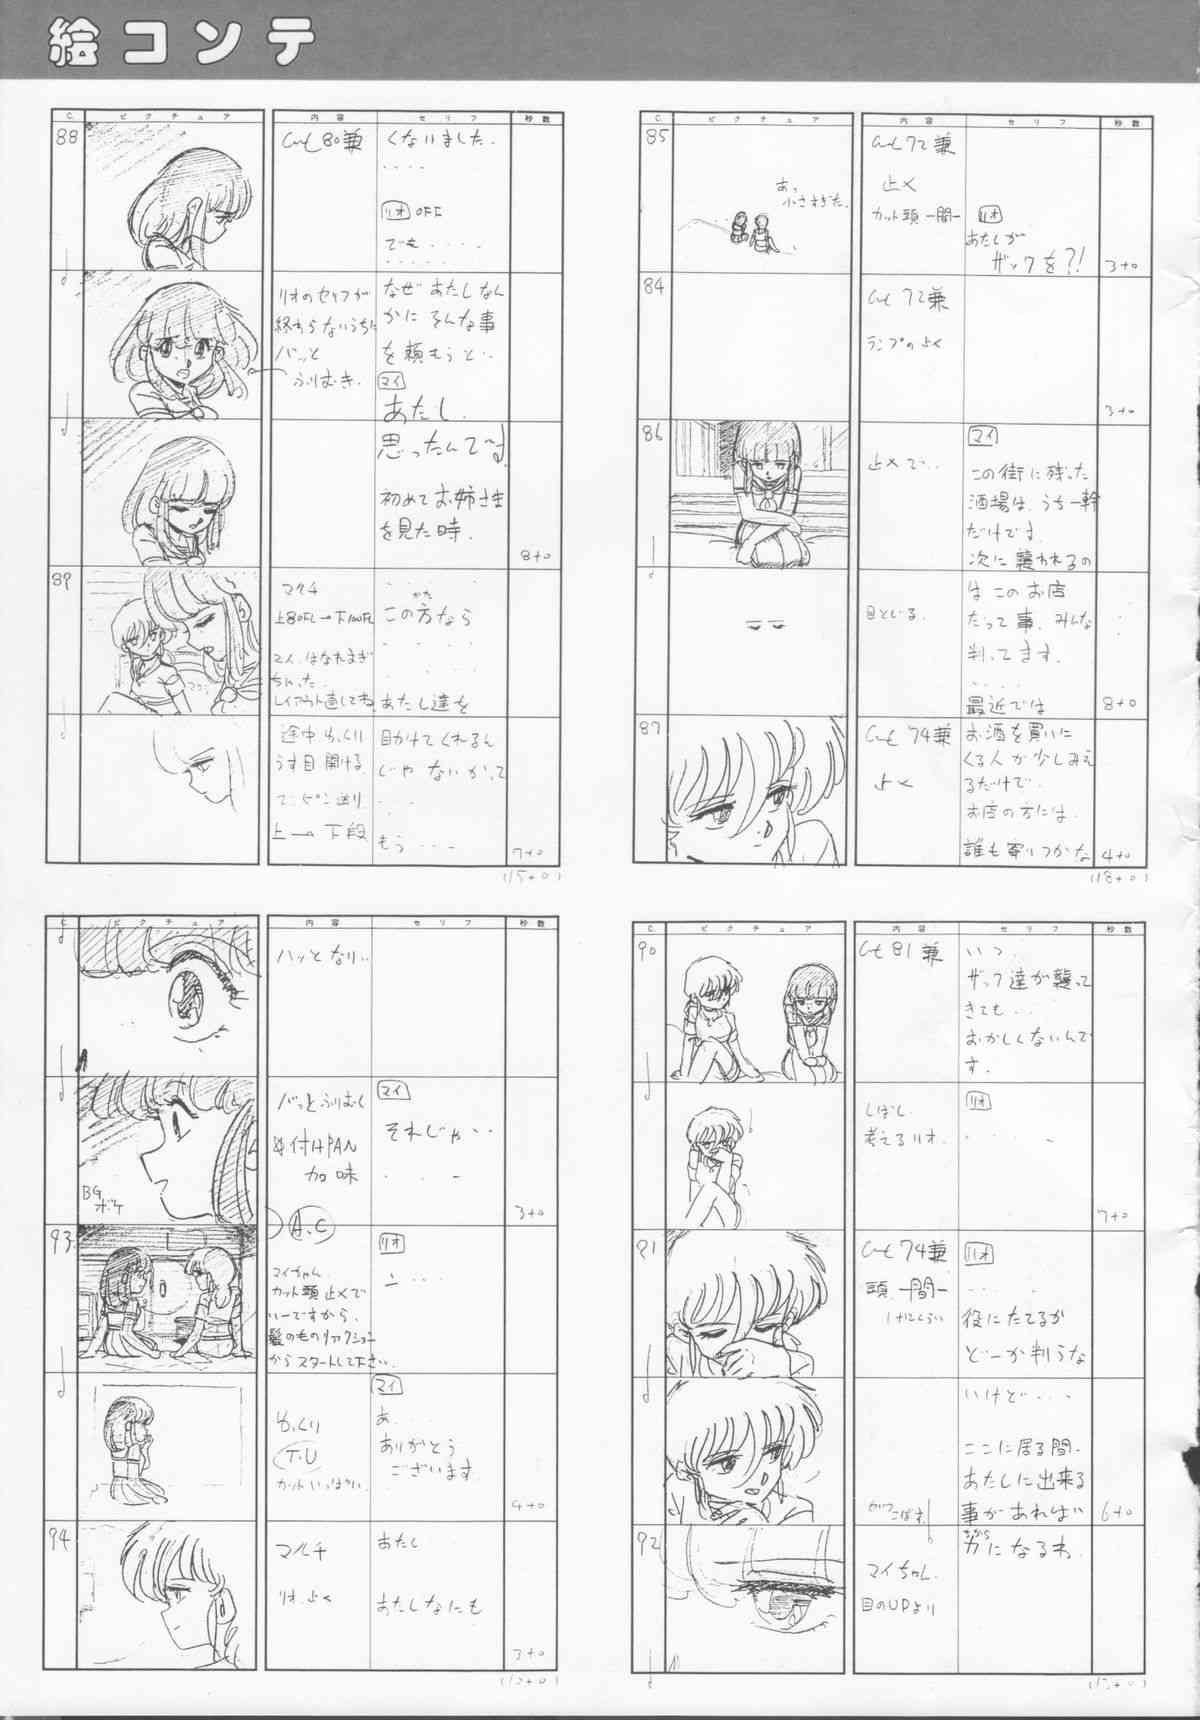 絵コンテ
C.
ピクチュア
内容
セリフ
秒数
85
あっ
小さすぎた。
Cut 72兼
止メ
カット頭一間
リオ
あたしが
ザックを?!
3+0
84
Cut 72兼
3+0
86
止メで‥
マイ
この街に残った
酒場は、うち一軒
だけです。
次に襲われるの
目とじる。
はこのお店
だって事、みんな
判ってます。
‥‥‥
最近では
8+0
87
Cut 74兼
止メ
お酒を買いに
くる人が少しみえ
るだけで。
お店の方には、
誰も寄りつかな
4+0
(18+0)
C.
ピクチュア
内容
セリフ
秒数
88
Cut 80兼
くないました。
‥‥
リオ OFF
でも‥‥
リオのセリフが
終わらないうちに
バッと
ふりむき、
なぜ あたしなん
かに そんな事
を頼もうと‥
マイ
あたし、
思ったんです。
初めてお姉さま
を見た時、
8+0
89
上80FL→下100FL
マイ、はなれすぎ
ちゃった。
レイアウト直してね。
かた
この方なら
あたし達を
途中ゆっくり
うす目開ける
上→下段
助けてくれるん
じゃないかって
‥‥
もう‥‥
7+0
(15+0)
C.
ピクチュア
内容
セリフ
秒数
90
Cut 81兼
いつ、
ザック達が襲って
きても‥
おかしくないんで
す。
しばし、
考えるリオ。
リオ
7+0
91
Cut 74兼
頭一間
リオ
‥‥
役にたてるか
どーか判らな
いけど‥‥
ここに居る間、
あたしに出来る
事があれば
6+0
92
マイちゃん、
目のUPより
ちから
力になるわ。
C.
ピクチュア
内容
セリフ
秒数
ハッとなり‥
バッとふりむく
付けPAN
加味
BG
ボケ
マイ
それじゃ‥
3+0
A.C
93
マイちゃん、
カット頭 止メで
いーですから、
髪のものリアクション
からスタートして下さい。
リオ
マイ
ゆっくり
T.U
カットいっぱい
あ‥‥
ありがとう
ございます。
4+0
94
マルチ
リオ、止メ
あたし
あたしなにも
3+0